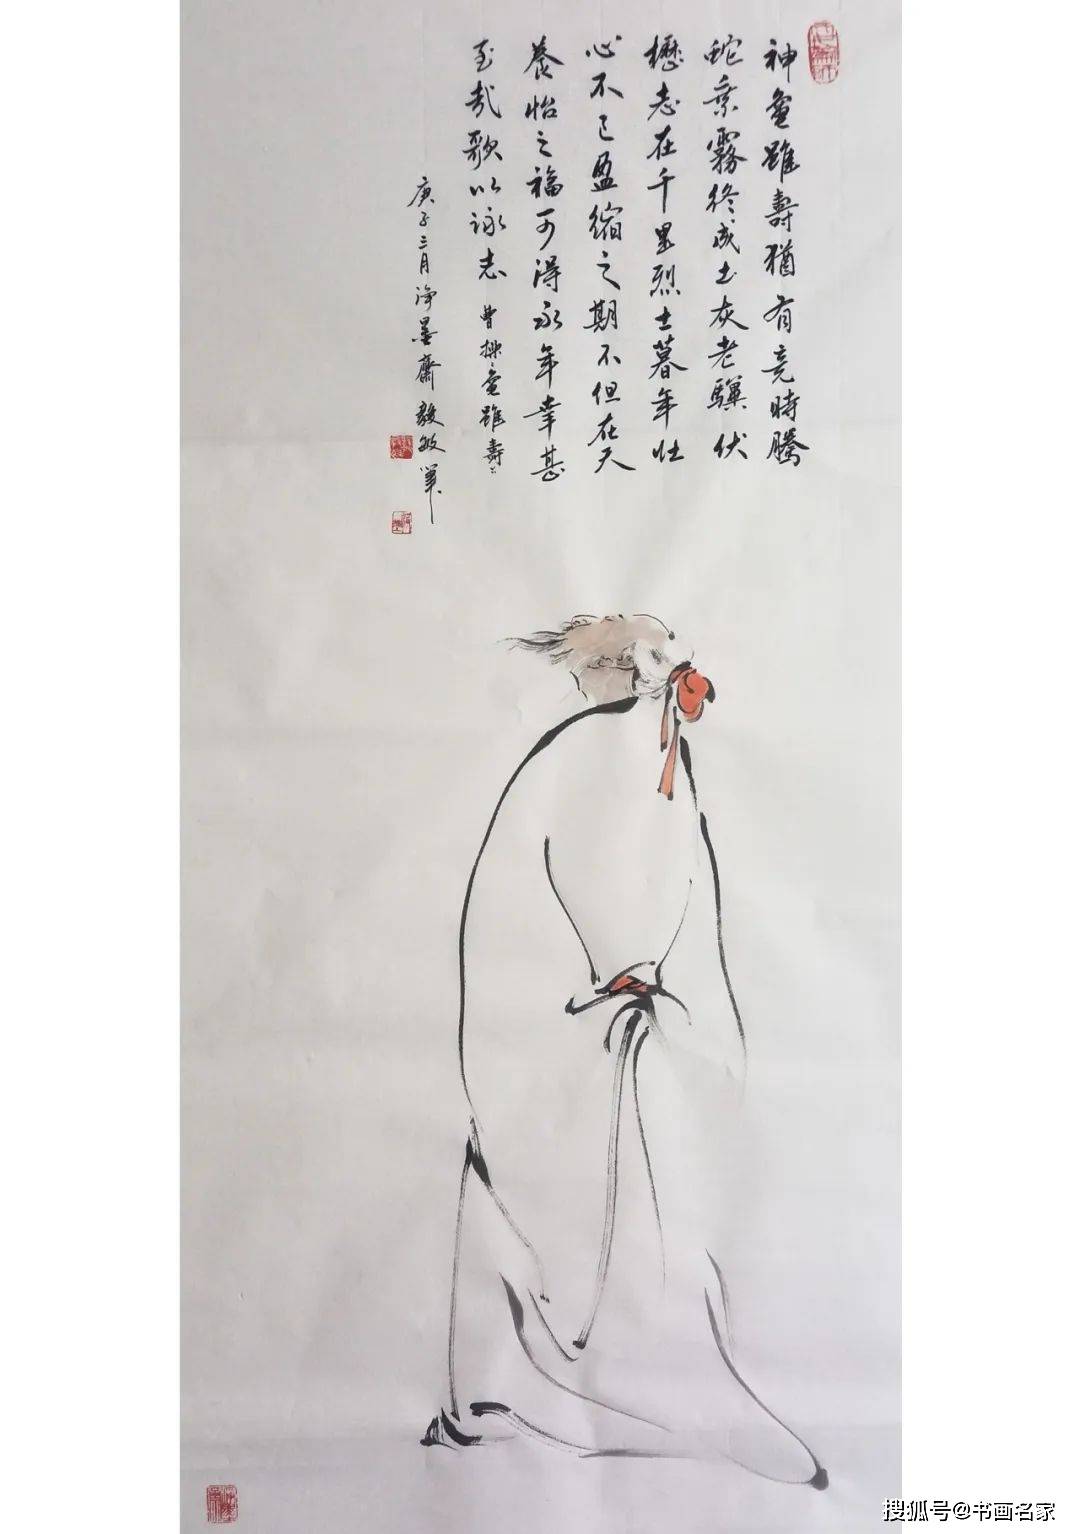 神龜雖壽猶有竟時騰
蛇乘霧終成土灰老驥伏
櫪志在千里烈士暮年壯
心不已盈縮之期不但在天
養怡之福可得永年幸甚
至哉歌以詠志 曹操龜雖壽
庚子三月 淨墨齋 毅敏筆
搜狐号@书画名家